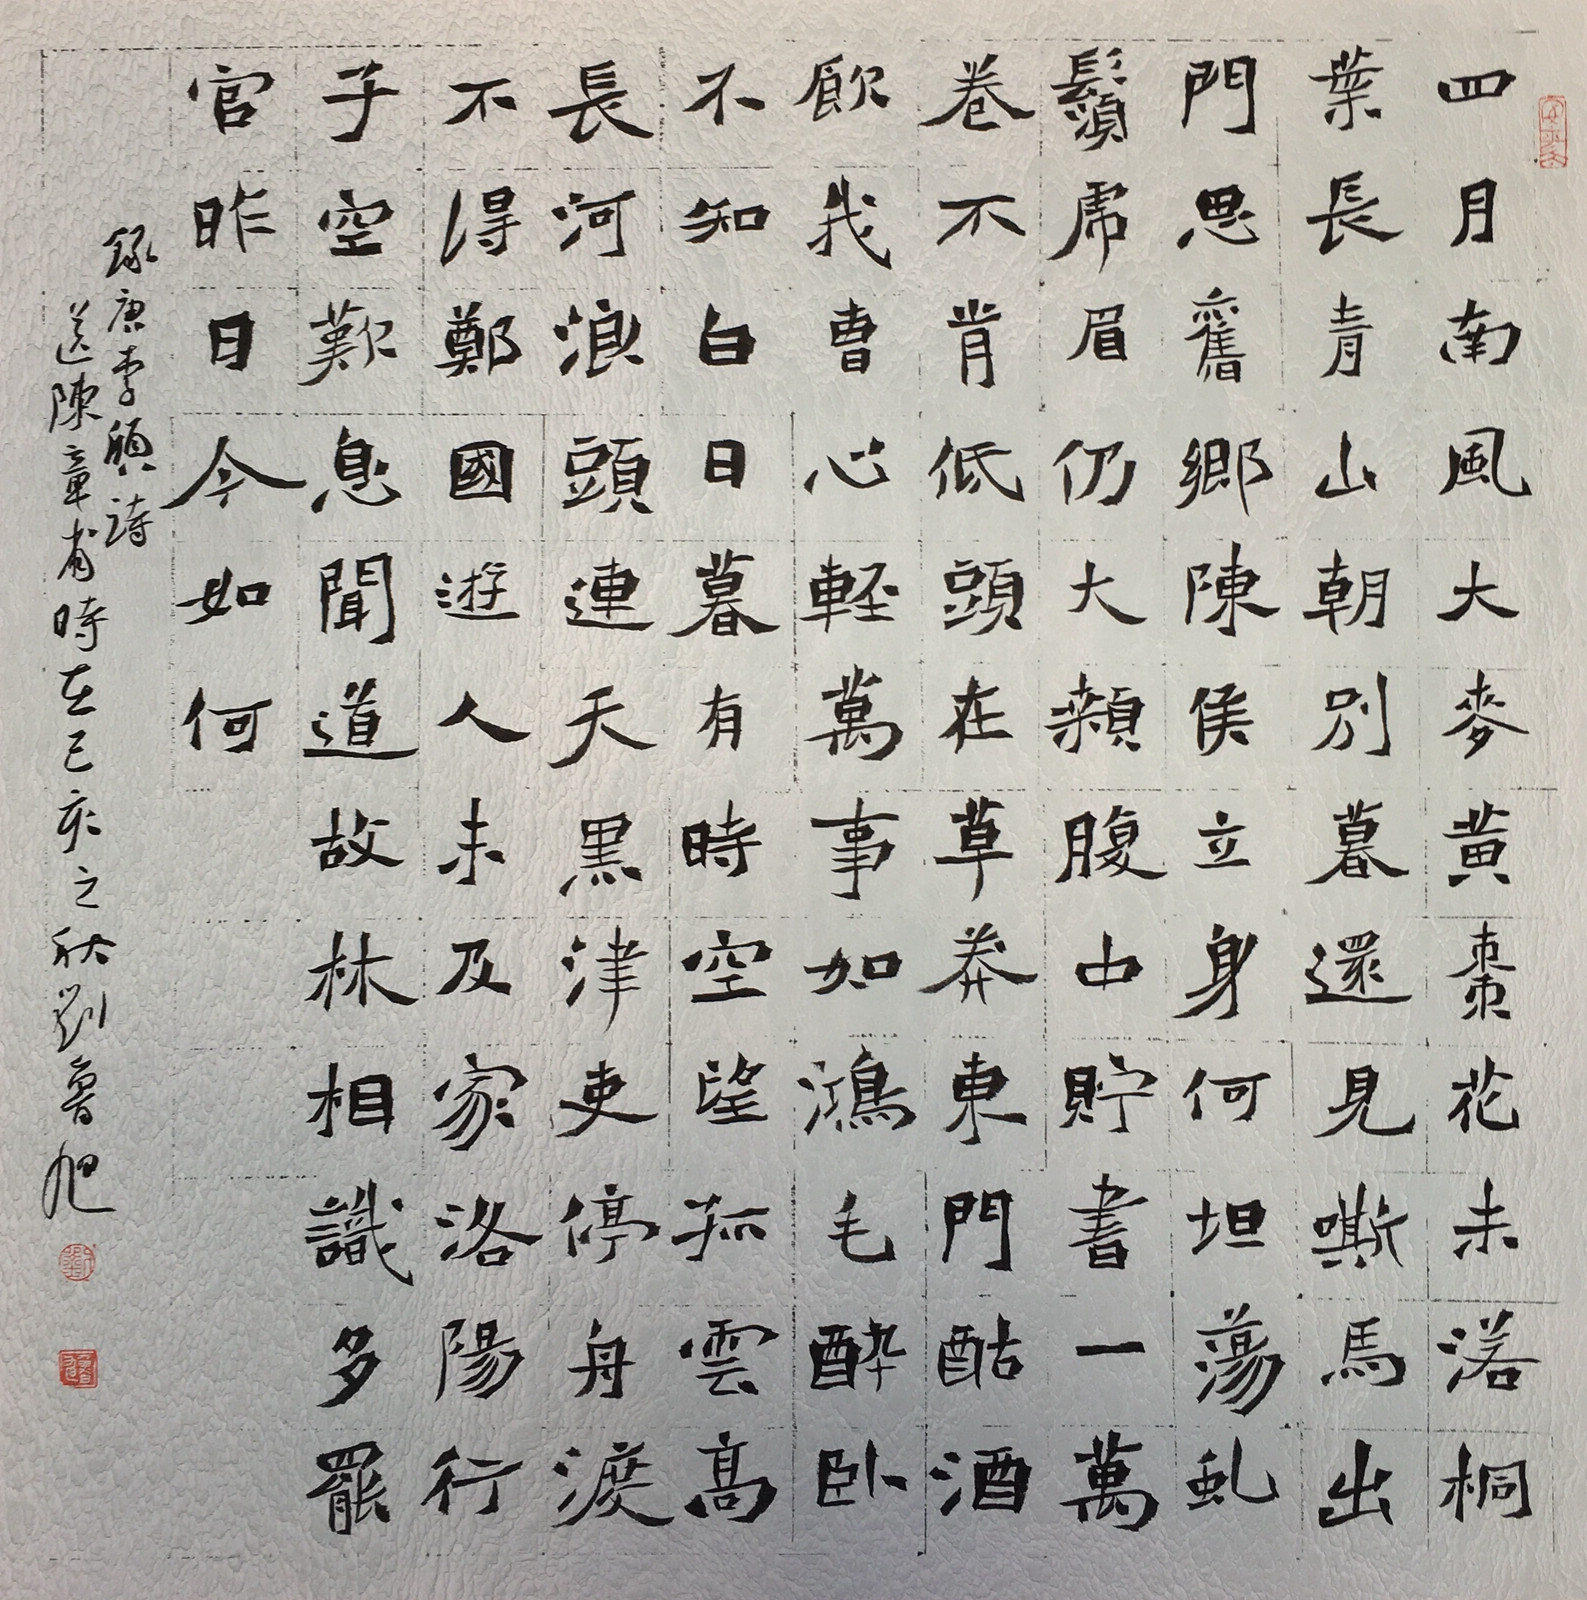 四月南風大麥黃棗花未落桐
葉長青山朝別暮還見嘶馬出
門思舊鄉陳侯立身何坦蕩虬
鬚虎眉仍大顙腹中貯書一萬
卷不肯低頭在草莽東門酤酒
飲我曹心輕萬事如鴻毛醉卧
不知白日暮有時空望孤雲高
長河浪頭連天黑津吏停舟渡
不得鄭國遊人未及家洛陽行
子空歎息聞道故林相識多罷
官昨日今如何
錄唐李頎詩
送陳章甫時在己亥之秋劉魯旭